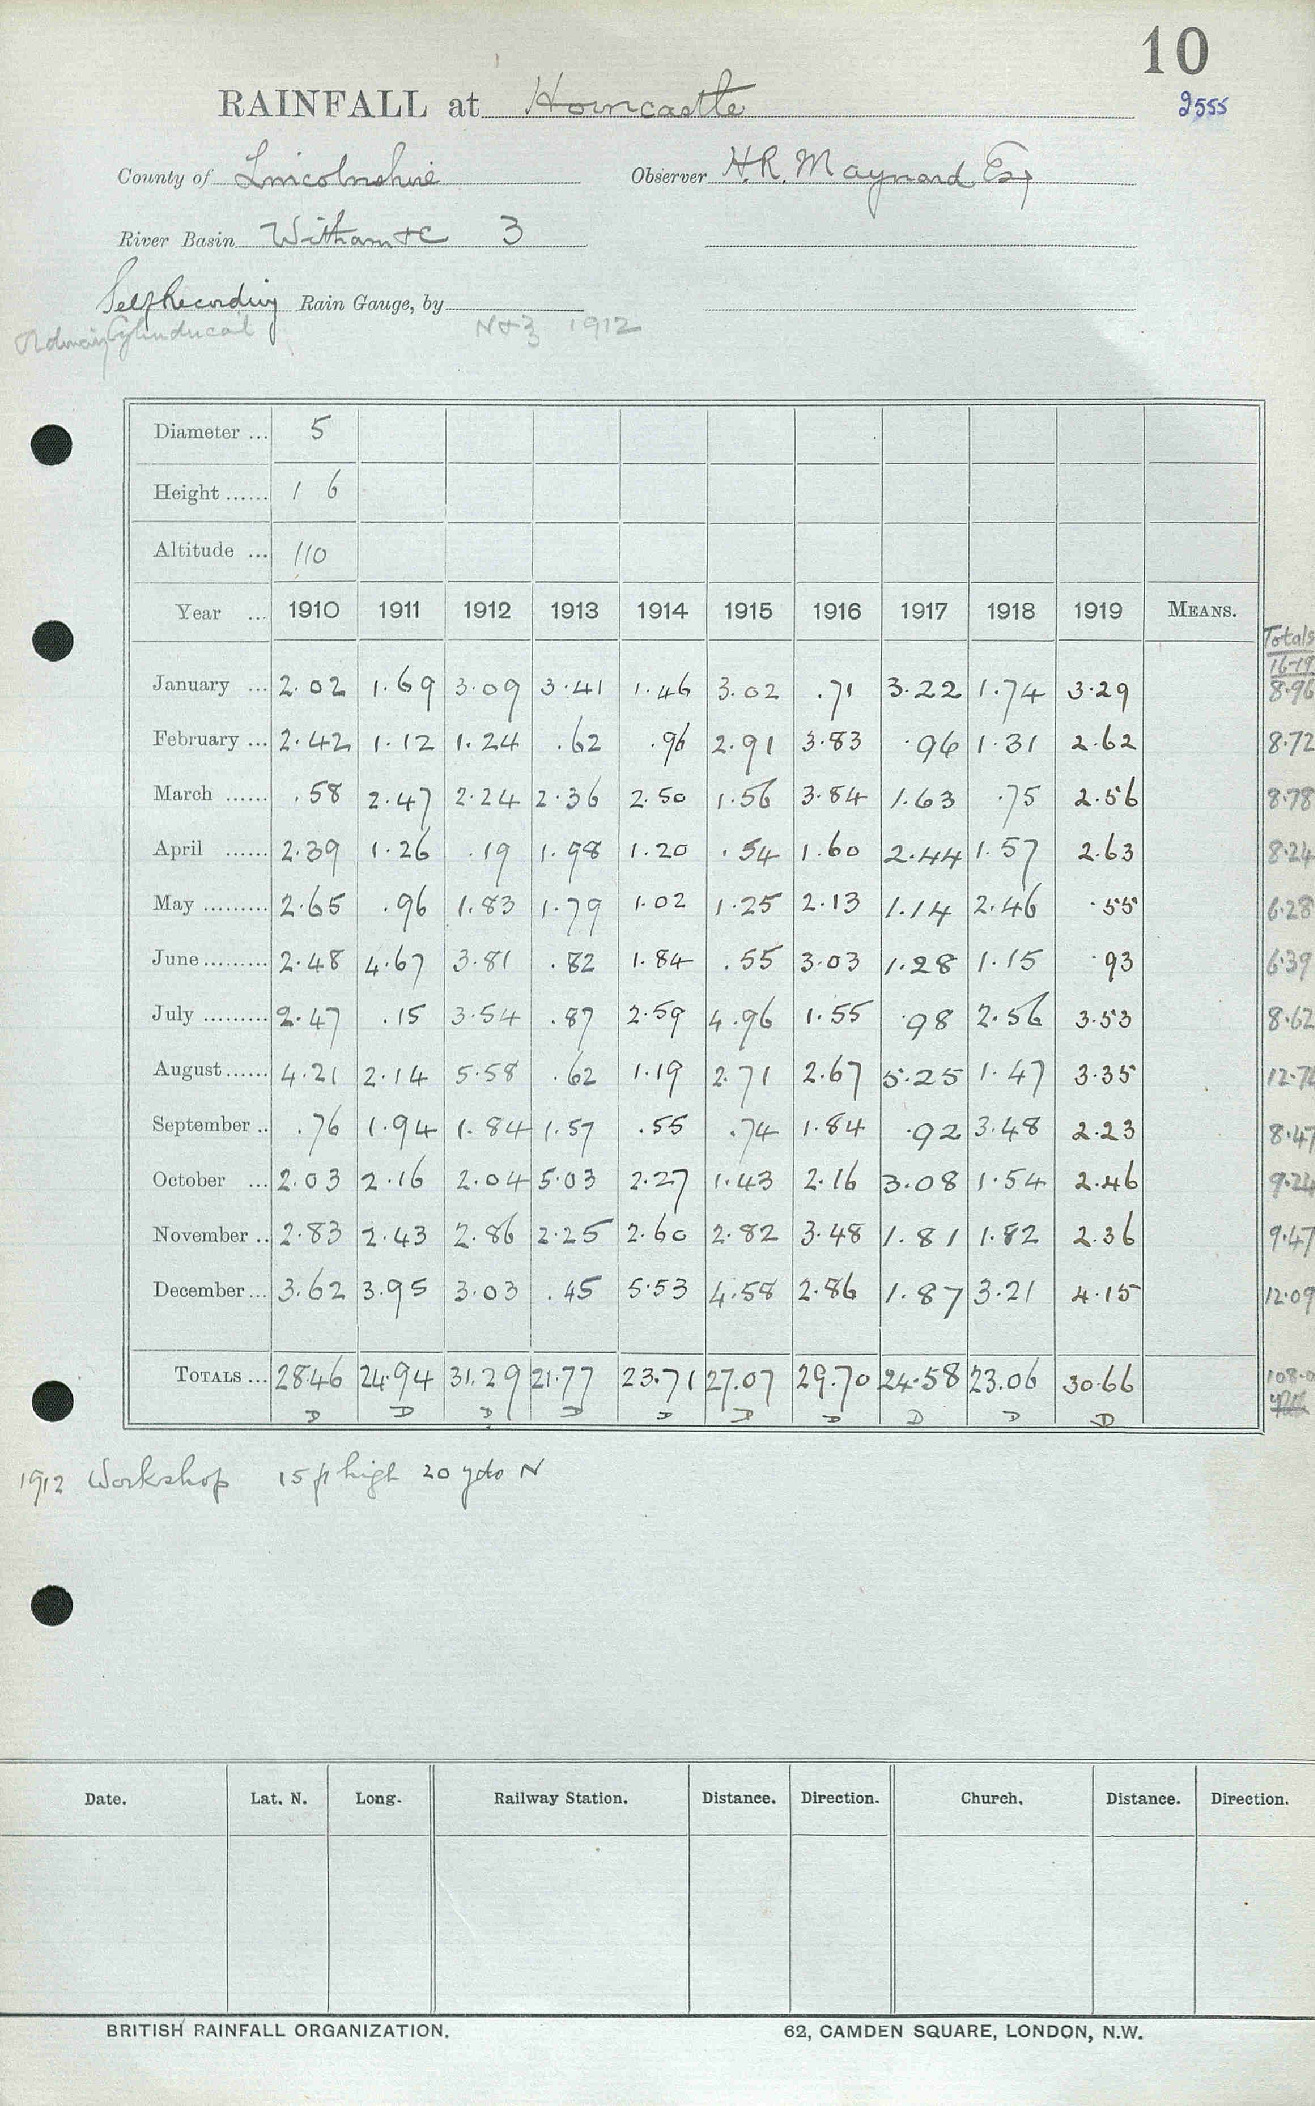 10
RAINFALL at Horncastle 2555
County of Lincolnshire Observer H.R. Maynard Esq
River Basin Witham &c 3
Self Recording Rain Gauge, by
Ordinary Cylindrical 1912
Diameter ... 5
Height ...... 1 6
Altitude ... 110
Year ... 1910 1911 1912 1913 1914 1915 1916 1917 1918 1919 MEANS. Totals
16-19
January ... 2.02 1.69 3.09 3.41 1.46 3.02 .71 3.22 1.74 3.29 8.96
February ... 2.42 1.12 1.24 .62 .96 2.91 3.83 .96 1.31 2.62 8.72
March ...... .58 2.47 2.24 2.36 2.50 1.56 3.84 1.63 .75 2.56 8.78
April ...... 2.39 1.26 .19 1.98 1.20 .54 1.60 2.44 1.57 2.63 8.24
May ......... 2.65 .96 1.83 1.79 1.02 1.25 2.13 1.14 2.46 .55 6.28
June ......... 2.48 4.67 3.81 .82 1.84 .55 3.03 1.28 1.15 .93 6.39
July ......... 2.47 .15 3.54 .87 2.59 4.96 1.55 .98 2.56 3.53 8.62
August ...... 4.21 2.14 5.58 .62 1.19 2.71 2.67 5.25 1.47 3.35 12.74
September .. .76 1.94 1.84 1.57 .55 .74 1.84 .92 3.48 2.23 8.47
October ... 2.03 2.16 2.04 5.03 2.27 1.43 2.16 3.08 1.54 2.46 9.24
November .. 2.83 2.43 2.86 2.25 2.60 2.82 3.48 1.81 1.82 2.36 9.47
December ... 3.62 3.95 3.03 .45 5.53 4.58 2.86 1.87 3.21 4.15 12.09
TOTALS ... 28.46 24.94 31.29 21.77 23.71 27.07 29.70 24.58 23.06 30.66 108.0
D D D D D D D D D D
1912 Workshop 15 ft high 20 yds N
Date. Lat. N. Long. Railway Station. Distance. Direction. Church. Distance. Direction.
BRITISH RAINFALL ORGANIZATION. 62, CAMDEN SQUARE, LONDON, N.W.